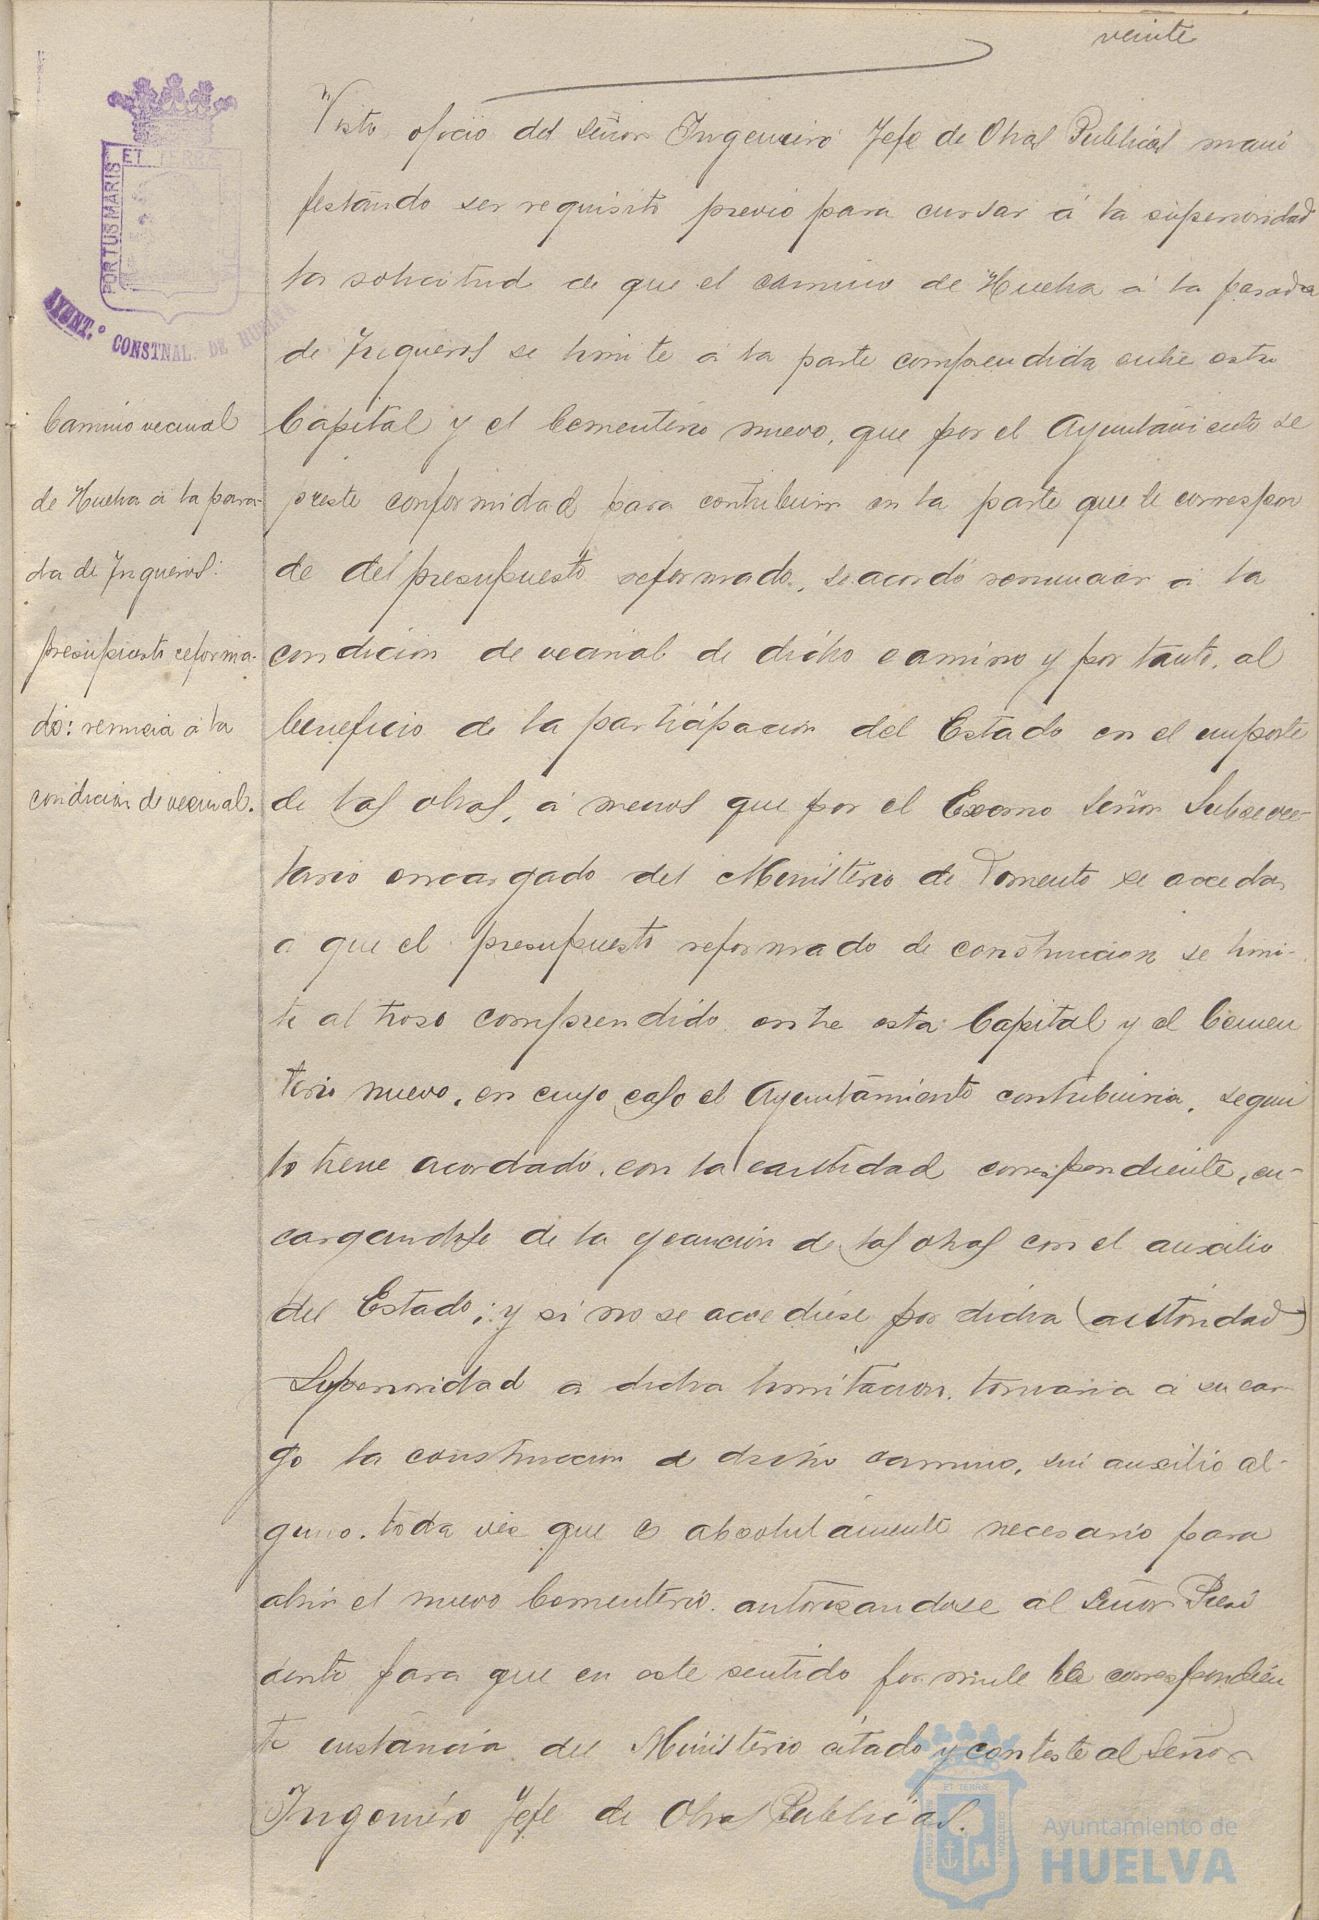 veinte
ET TERRÆ
PORTUS MARIS
AYUNT.º CONSTNAL. DE HUELVA
Camino vecinal
de Huelva á la para-
da de Jugueros:
presupuesto reforma-
do: renuncia á la
condicion de vecinal.
Visto oficio del Señor Ingeniero Jefe de Obras Publicas mani
festando ser requisito previo para cursar á la superioridad
la solicitud de que el camino de Huelva á la parada
de Jugueros se limite á la parte comprendida entre esta
Capital y el Cementerio nuevo, que por el Ayuntamiento se
preste conformidad para contribuir en la parte que le correspon
de del presupuesto reformado, se acordó renunciar á la
condicion de vecinal de dicho camino y por tanto, al
beneficio de la participacion del Estado en el importe
de las obras, á menos que por el Excmo Señor Subsecre-
tario encargado del Ministerio de Fomento se acceda
a que el presupuesto reformado de construccion se limi-
te al troso comprendido entre esta Capital y el Cemen
terio nuevo, en cuyo caso el Ayuntamiento contribuiria, segun
lo tiene acordado, con la cantidad correspondiente, en-
cargandose de la ejecución de las obras con el auxilio
del Estado; y si no se accediese por dicha (autoridad)
Superioridad a dicha limitacion, tomaria á su car
go la construccion de dicho camino, sin auxilio al-
guno, toda vez que es absolutamente necesario para
abrir el nuevo Cementerio, autorizandose al Señor Presi
dente para que en este sentido formule la correspondien
te instancia del Ministerio citado y conteste al Señor
Ingeniero Jefe de Obras Publicas.
Ayuntamiento de
HUELVA